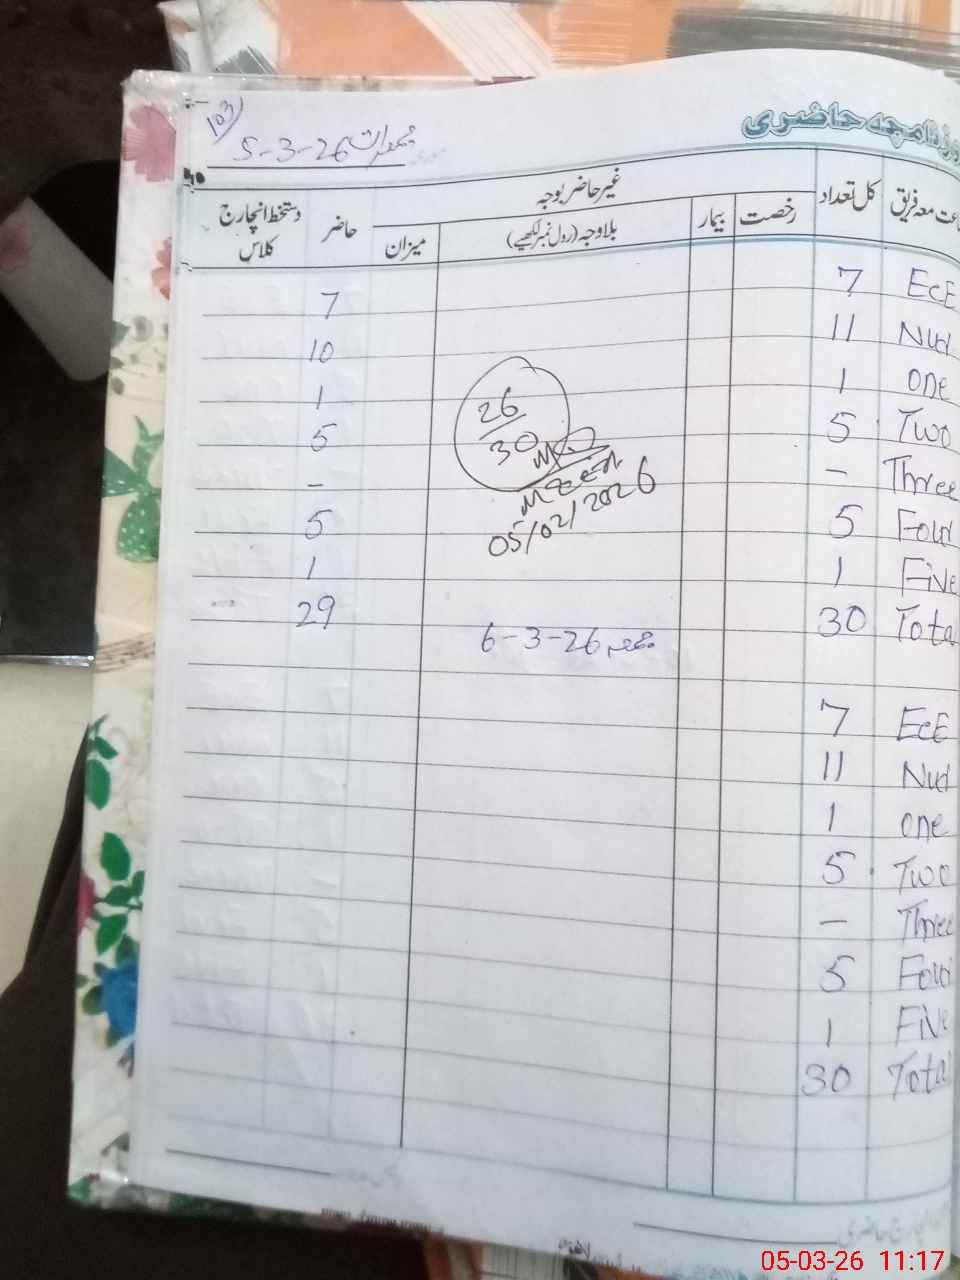 103
جمعرات 5-3-26
روزنامچہ حاضری
کل تعداد رخصت بیمار غیر حاضر بوجہ حاضر دستخط انچارج کلاس
بلاوجہ (رول نمبر لکھیے) میزان
EcE 7 7
Nur 11 10
one 1 1
Two 5 5
Three - -
Four 5 5
Five 1 1
Total 30 29
26/30
05/02/2026
جمعہ 6-3-26
EcE 7
Nur 11
one 1
Two 5
Three -
Four 5
Five 1
Total 30
05-03-26 11:17